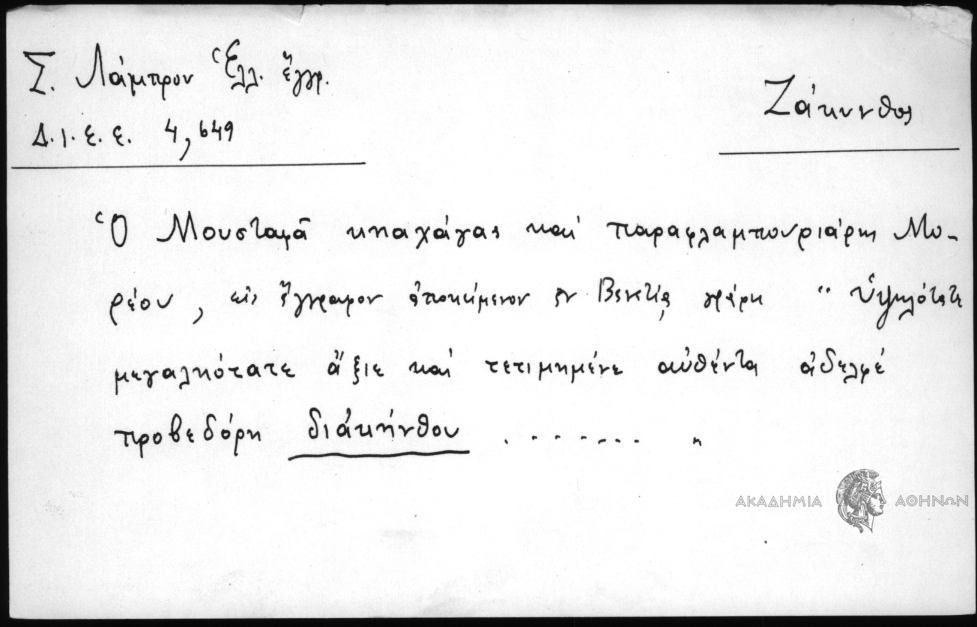 Σ. Λάμπρου Ἑλλ. ἔγγρ.
Δ.Ι.Ε.Ε. 4,649
Ζάκυνθος
Ὁ Μουσταφᾶ κηαχάγας καί παραφλαμπουριάρης Μο-
ρέου, εἰς ἔγγραφον ἀποκείμενον ἐν Βενετίᾳ γράφει " ὑψηλότατε
μεγαληότατε ἄξιε καί τετιμημένε αὐθέντα ἀδελφέ
προβεδόρη διάκήνθου ........ "
ΑΚΑΔΗΜΙΑ ΑΘΗΝΩΝ